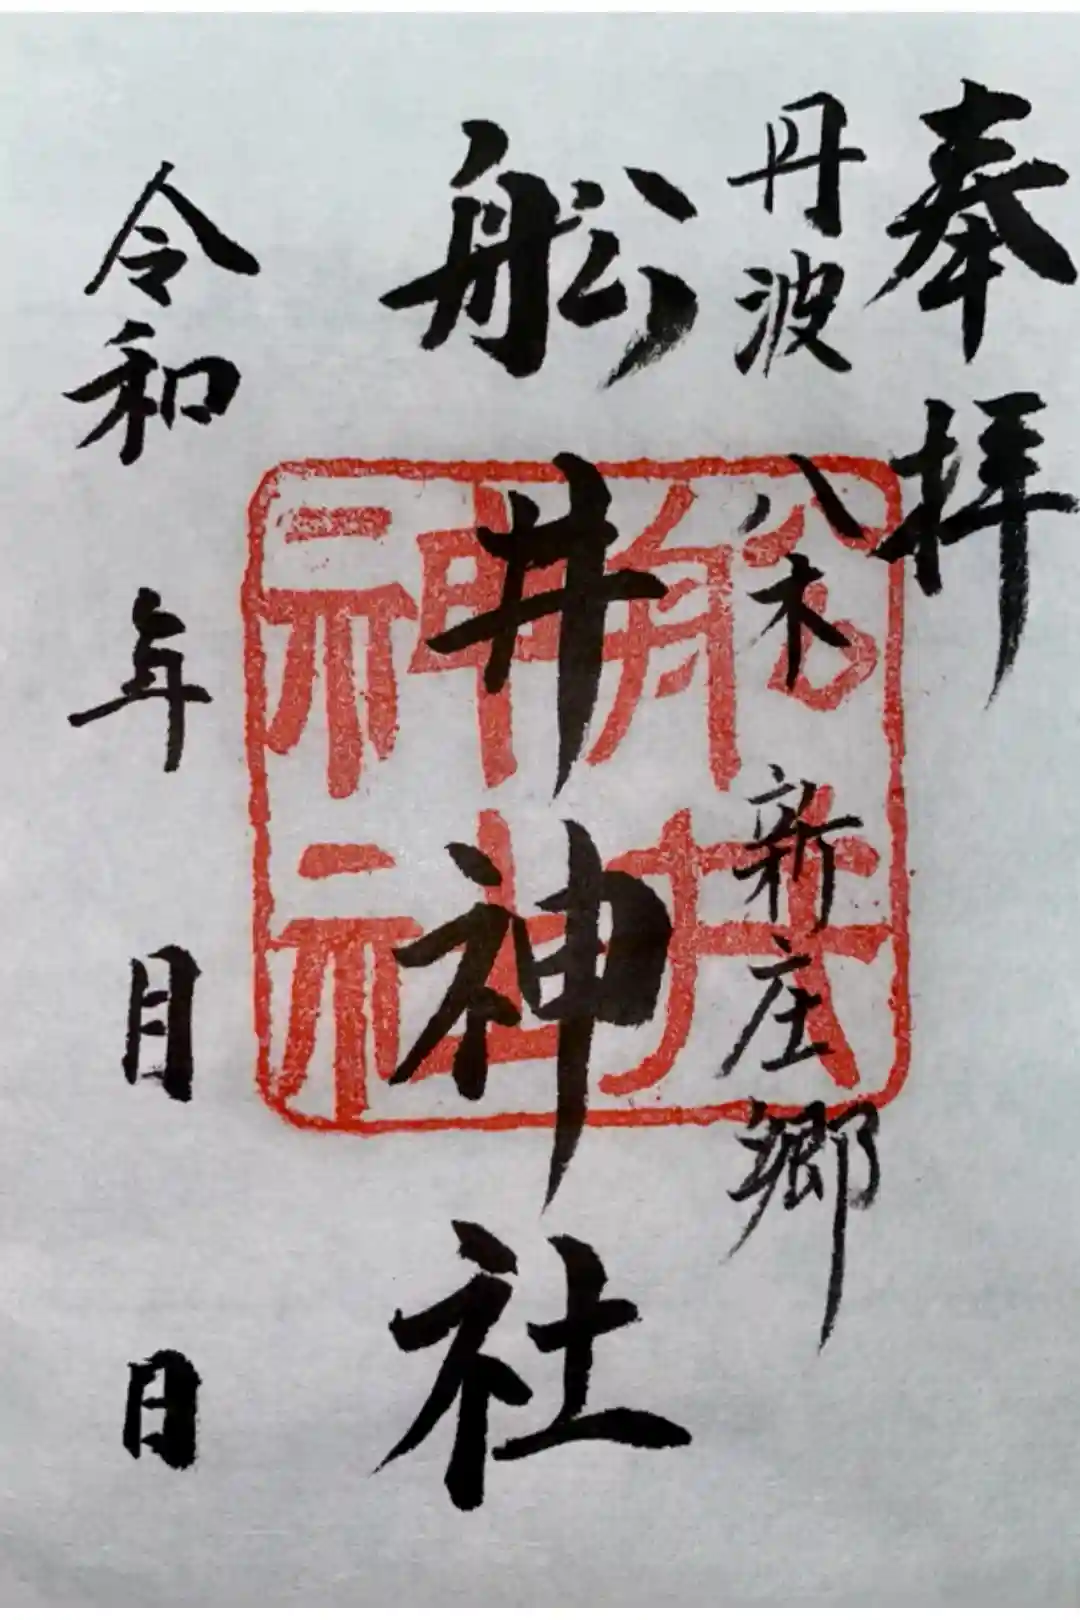 奉拝
丹波 八木 新庄郷
舩井神社
舩井神社
令和 年 月 日